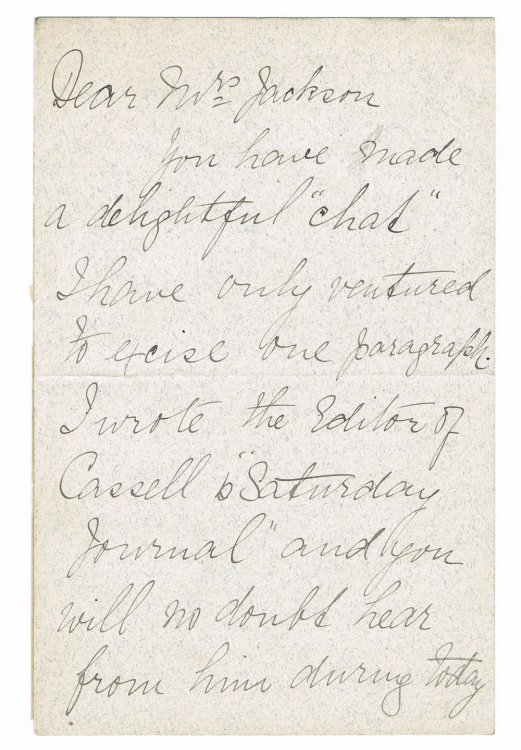 Dear Mrs Jackson
You have made
a delightful "chat"
I have only ventured
to excise one paragraph.
I wrote the Editor of
Cassell's "Saturday
Journal" and you
will no doubt hear
from him during today